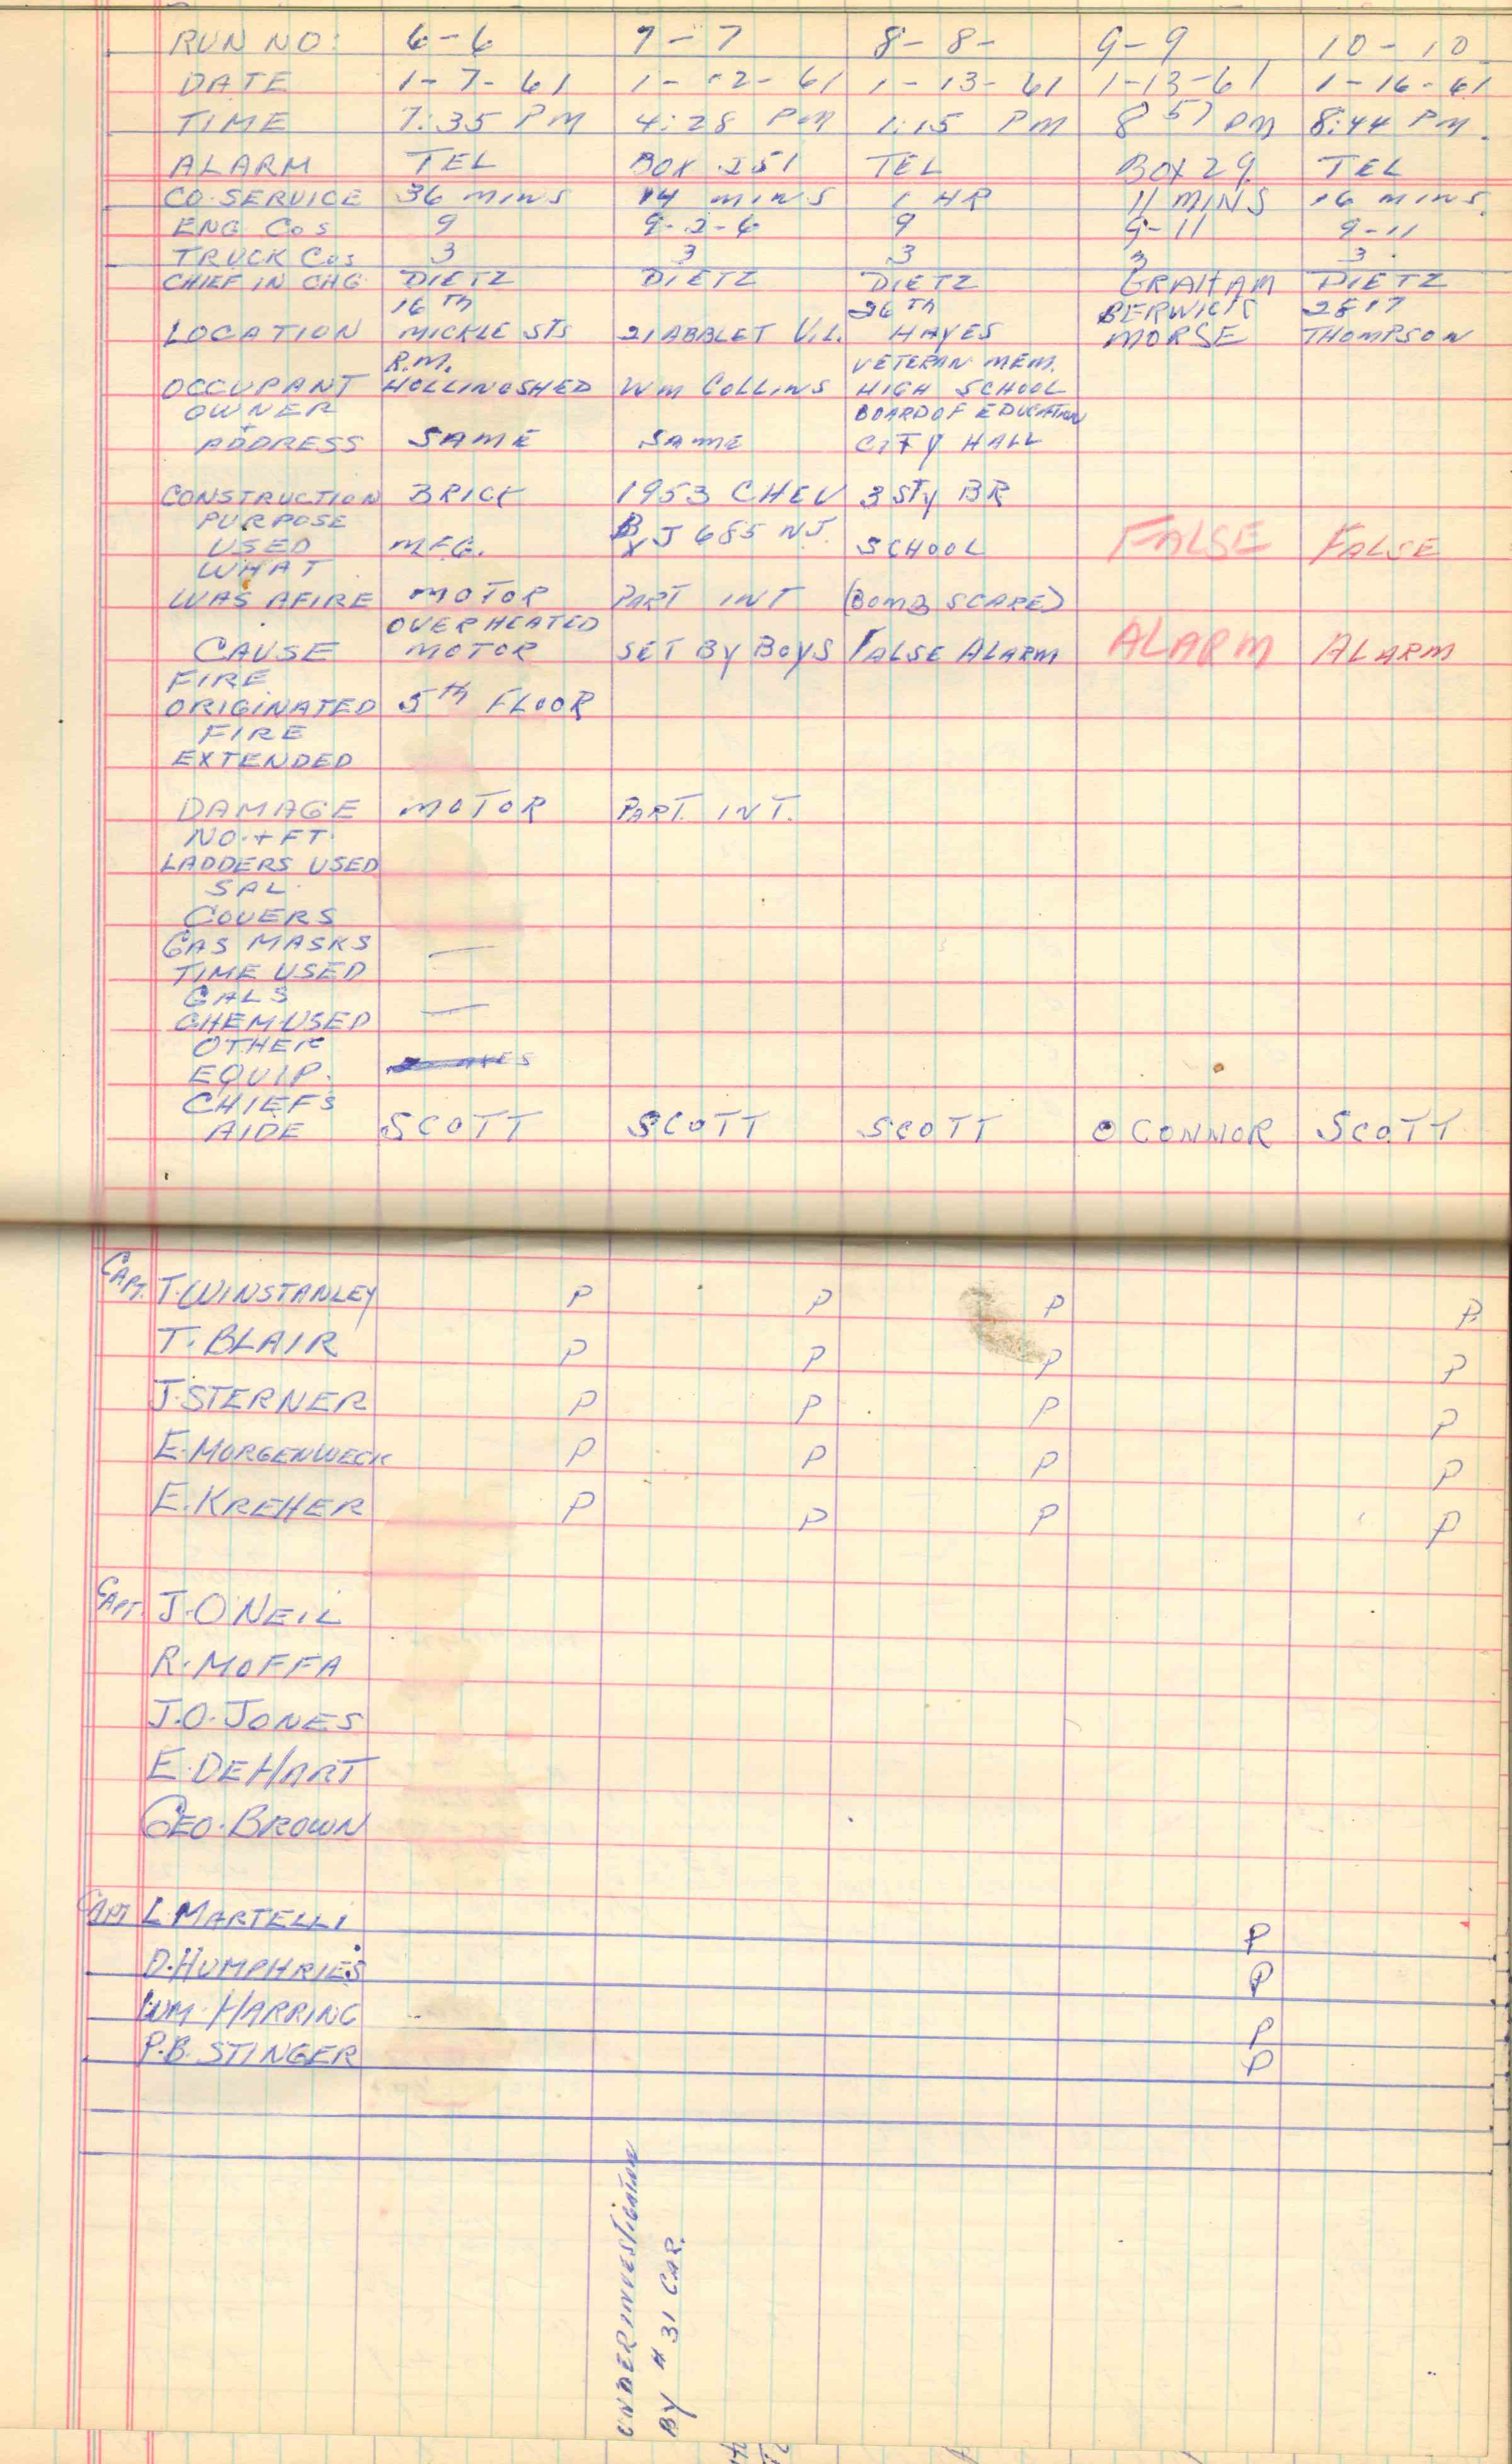 RUN NO: 6-6 7-7 8-8- 9-9 10-10
DATE 1-7-61 1-12-61 1-13-61 1-13-61 1-16-61
TIME 7:35 PM 4:28 PM 1:15 PM 8 57 PM 8:44 PM.
ALARM TEL BOX 251 TEL BOX 29 TEL
CO. SERVICE 36 MINS 14 MINS 1 HR 11 MINS 16 MINS.
ENG COS 9 9-2-6 9 9-11 9-11
TRUCK COS 3 3 3 3 3
CHIEF IN CHG DIETZ DIETZ DIETZ GRAHAM DIETZ
16 TH 26 TH BERWICK 2817
LOCATION MICKLE STS 21 ABBLET VIL. HAYES MORSE THOMPSON
R.M. VETERAN MEM.
OCCUPANT HOLLINGSHED WM COLLINS HIGH SCHOOL
OWNER BOARD OF EDUCATION
ADDRESS SAME SAME CITY HALL
CONSTRUCTION BRICK 1953 CHEV 3 STY BR
PURPOSE
USED MFG. J 685 NJ. SCHOOL FALSE FALSE
WHAT
WAS AFIRE MOTOR PART INT (BOMB SCARE)
OVERHEATED
CAUSE MOTOR SET BY BOYS FALSE ALARM ALARM ALARM
FIRE
ORIGINATED 5TH FLOOR
FIRE
EXTENDED
DAMAGE MOTOR PART. INT.
NO. + FT.
LADDERS USED
SAL.
COVERS
GAS MASKS —
TIME USED
GALS
CHEM. USED —
OTHER
EQUIP.
CHIEFS
AIDE SCOTT SCOTT SCOTT O CONNOR SCOTT
CAPT. T. WINSTANLEY P P P P
T. BLAIR P P P P
J. STERNER P P P P
E. MORGENWECK P P P P
E. KREHER P P P P
CAPT. J. O NEIL
R. MOFFA
J.O. JONES
E. DEHART
GEO. BROWN
CAPT L. MARTELLI P
D. HUMPHRIES P
WM. HARRING P
P.B. STINGER P
UNDER INVESTIGATION
BY # 31 CAR.